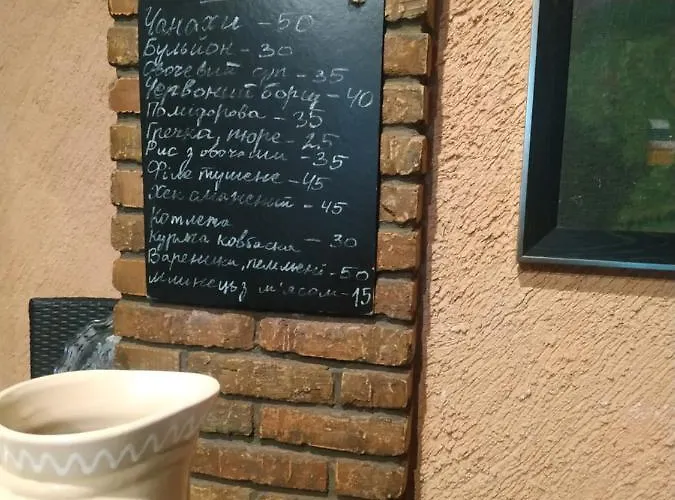 Чанахи - 50
Бульйон - 30
Овочевий суп - 35
Червоний борщ - 40
Помидорова - 35
Гречка, пюре - 25
Рис з овочами - 35
Філе тушене - 45
Хек смажений - 45
Котлета
Куряча ковбаска - 30
Вареники, пельмені - 50
Млинець з м'ясом - 15